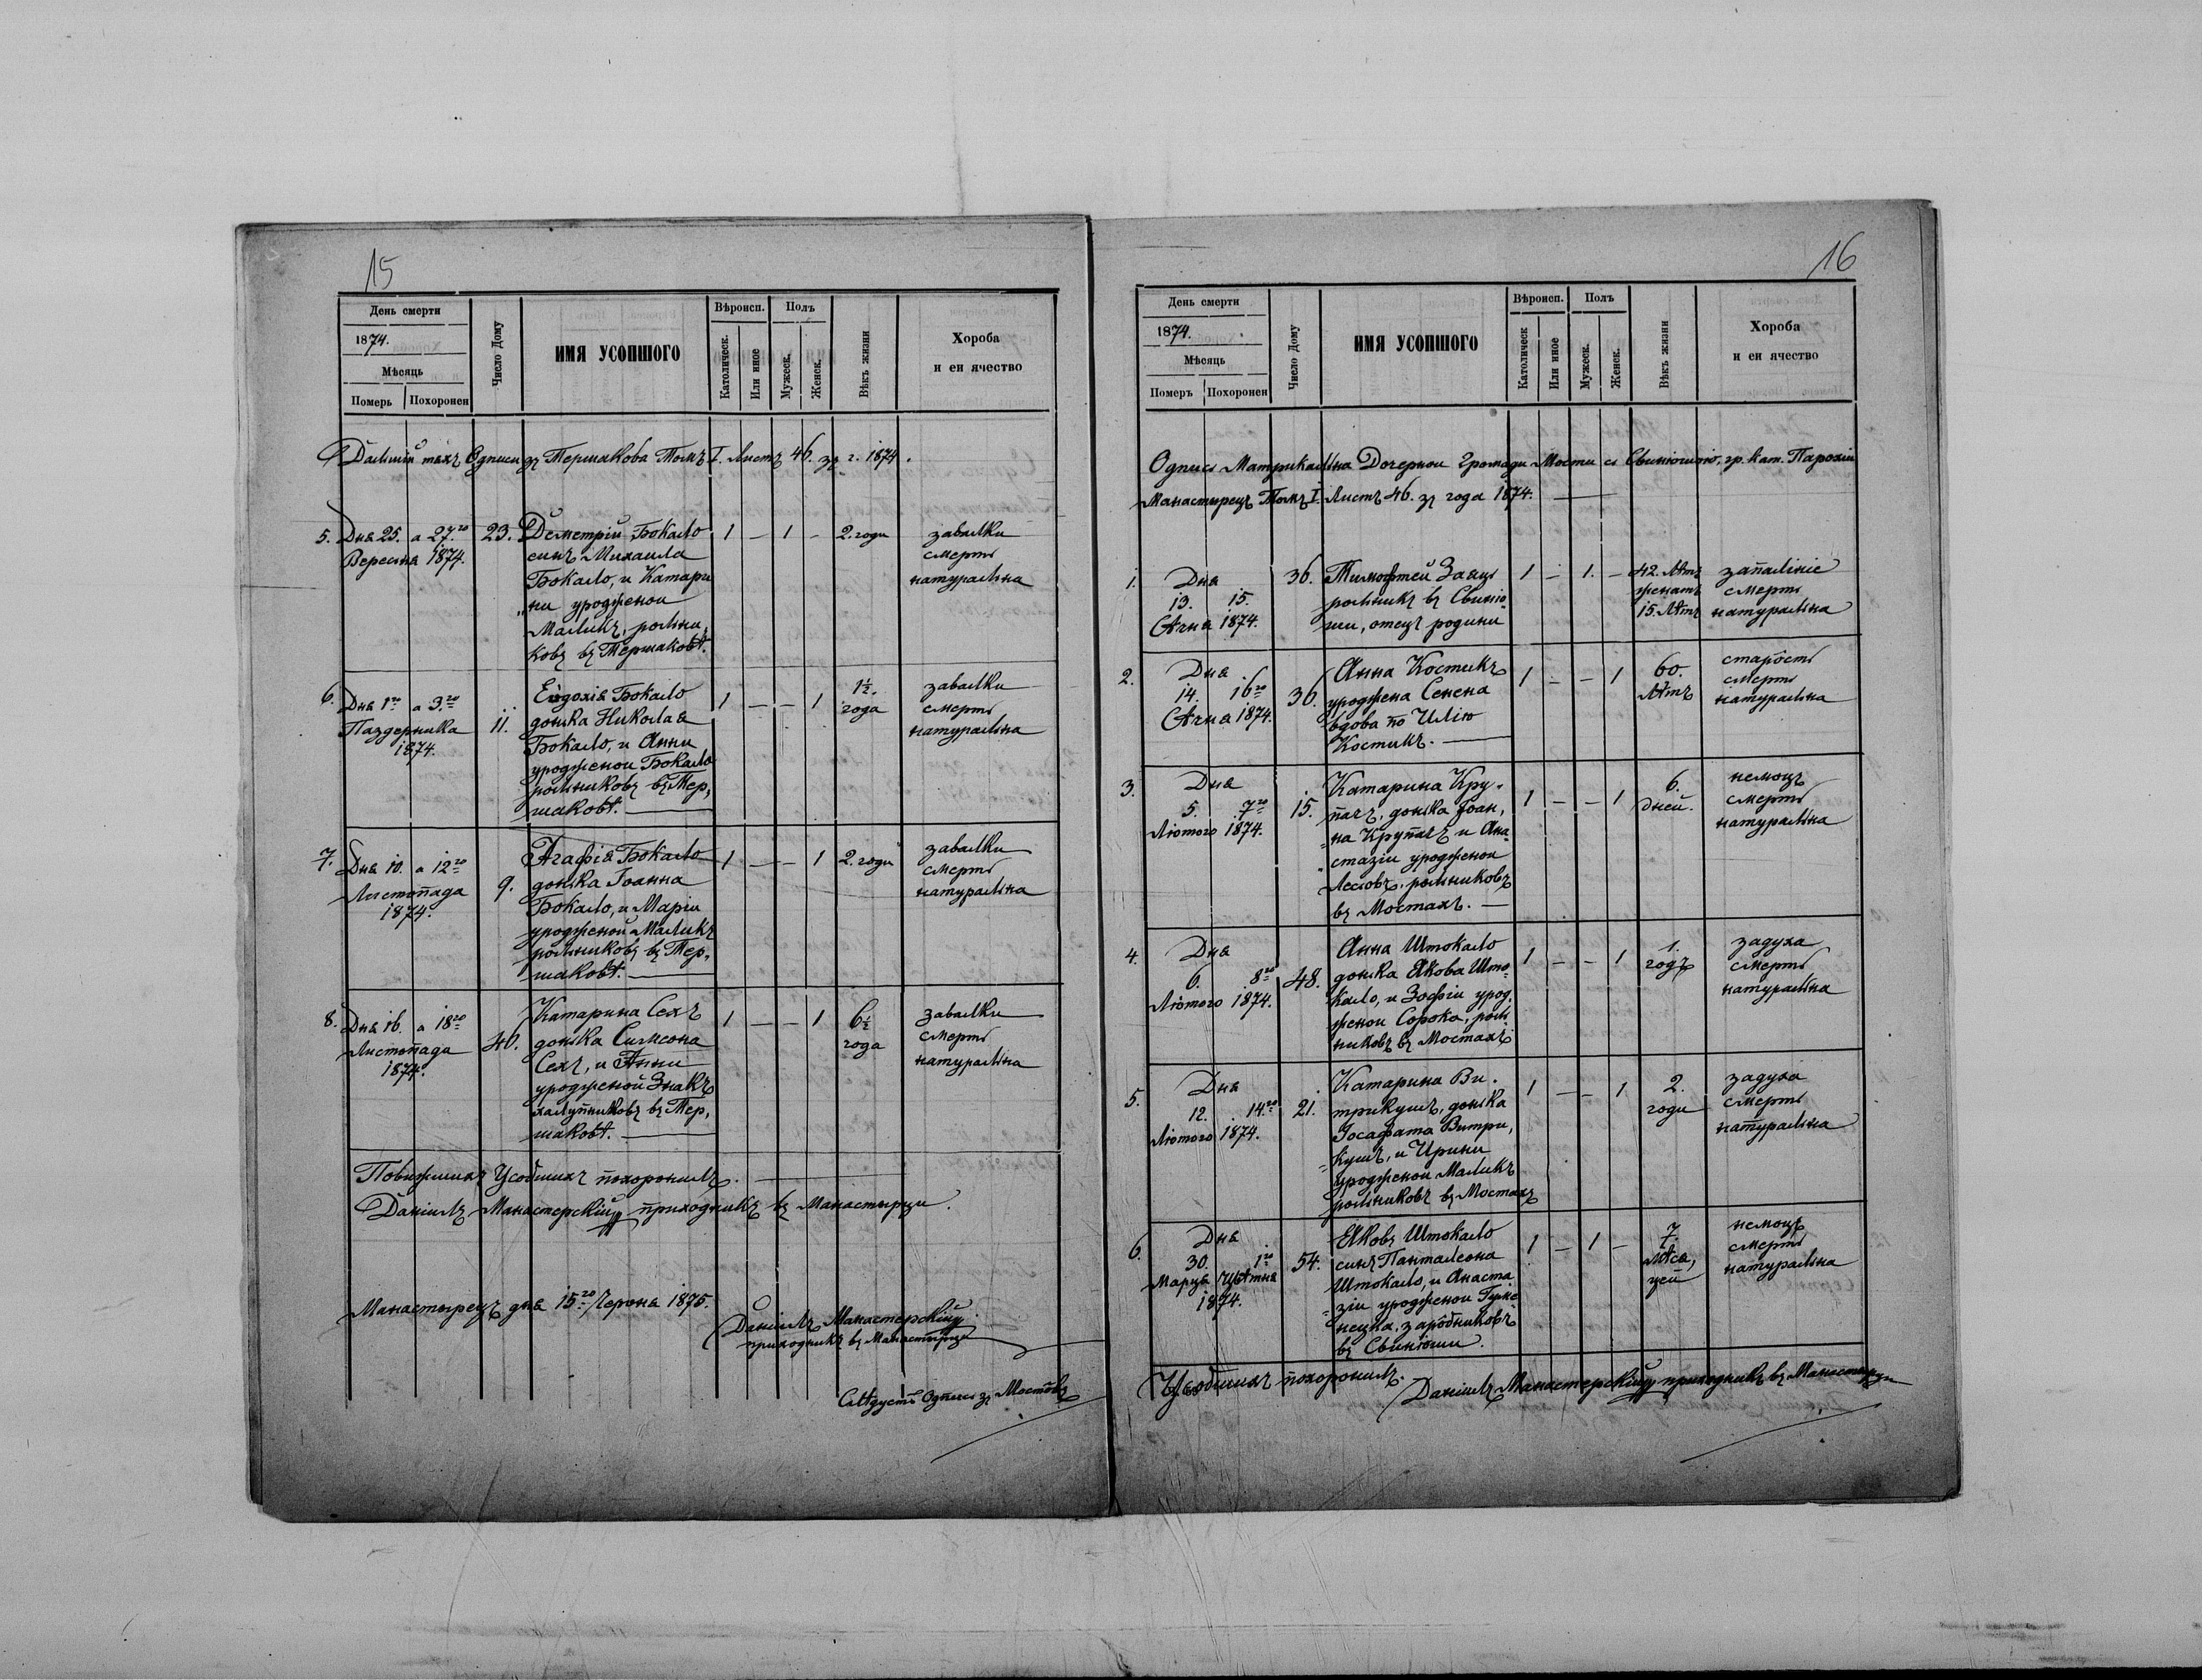 15
День смерти
1874.
Мѣсяць
Померъ
Похоронен
Число Дому
ИМЯ УСОПШОГО
Вѣроисп.
Католическ.
Или иное
Полъ
Мужеск.
Женск.
Вѣкъ жизни
Хороба
и еи ячество
Дальшій тяхъ Одписи зъ Тершакова Томъ I. Листъ 46. зъ г. 1874.
5. Дня 25. а 27.го
Вересня 1874.
23.
Деметрій Бокало
синъ Михаила
Бокало, и Катари
„ни уродженои
Маликъ, рольни„
ковъ въ Тершаковѣ.
1 — 1 —
2. годи
завалки
смерть
натуральна
6. Дня 1го а 3.го
Паздерника
1874.
11.
Евдокія Бокало
донька Николая
Бокало, и Анни
уродженои Бокало
рольниковъ въ Тер„
шаковѣ. —
1 — — 1
1½.
года
завалки
смерть
натуральна
7. Дня 10. а 12го
Листопада
1874.
9.
Агафія Бокало
донька Іоанна
Бокало, и Маріи
уродженой Маликъ
рольниковъ въ Тер„
шаковѣ. —
1 — — 1
2. годи
завалки
смерть
натуральна
8. Дня 16. а 18го
Листопада
1874.
40.
Катарина Сехъ
донька Симеона
Сехъ, и Анни
уродженой Знакъ
халупниковъ въ Тер„
шаковѣ. —
1 — — 1
6½
года
завалки
смерть
натуральна
Повижшихъ Усобшихъ похоронилъ. —
Даніилъ Манастерскій приходникъ въ Манастирци.
Манастырецъ дня 15.го Червня 1875.
Даніилъ Манастерскій
приходникъ въ Манастирци
Слѣдуетъ Одпись зъ Мостовъ
16
День смерти
1874.
Мѣсяць
Померъ
Похоронен
Число Дому
ИМЯ УСОПШОГО
Вѣроисп.
Католическ
Или иное
Полъ
Мужеск.
Женск.
Вѣкъ жизни
Хороба
и еи ячество
Одпись Матрикальна Дочернои Громади Мости съ Свинюшою, гр. кат. Парохіи
Манастырецъ Томъ I. Листъ 46. зъ года 1874. —
1. Дня
13. 15.
Сѣчня 1874.
36.
Тимофтей Заяцъ
рольникъ въ Свиню„
ши, отецъ родини
1 — 1. —
42. лѣтъ
женатъ
15. лѣтъ
запаленіе
смерть
натуральна
2. Дня
14. 16го
Сѣчня 1874.
36.
Анна Костикъ
уроджена Сенена
вдова по Илію
Костикъ. —
1 — — 1
60.
лѣтъ
старость
смерть
натуральна
3. Дня
5. 7го
Лютого 1874.
15.
Катарина Кру„
пачъ, донька Іоан„
на Крупачъ и Ана
стазіи уродженои
Лесювъ, рольниковъ
въ Мостахъ. —
1 — — 1
6.
дней.
немощь
смерть
натуральна
4. Дня
6. 8го
Лютого 1874.
48.
Анна Штокало
донька Якова Што„
кало, и Зофіи урод„
женои Сорока, роль
никовъ въ Мостахъ
1 — — 1
1.
годъ
задуха
смерть
натуральна
5. Дня
12. 14.го
Лютого 1874.
21.
Катарина Ви„
трикушъ, донька
Іосафата Витри„
кушъ, и Ирини
уродженои Маликъ
рольниковъ въ Мостахъ
1 — — 1
2.
годи
задуха
смерть
натуральна
6. Дня
30. 1го
Марца Цвѣтня
1874.
54.
Яковъ Штокало
синъ Панталеона
Штокало, и Анаста
зіи уродженои
заробниковъ
въ Свинюши.
1 — 1 —
7.
мѣся„
цей
немощь
смерть
натуральна
Усобшихъ похоронилъ.
Даніилъ Манастерскій приходникъ въ Манастирци